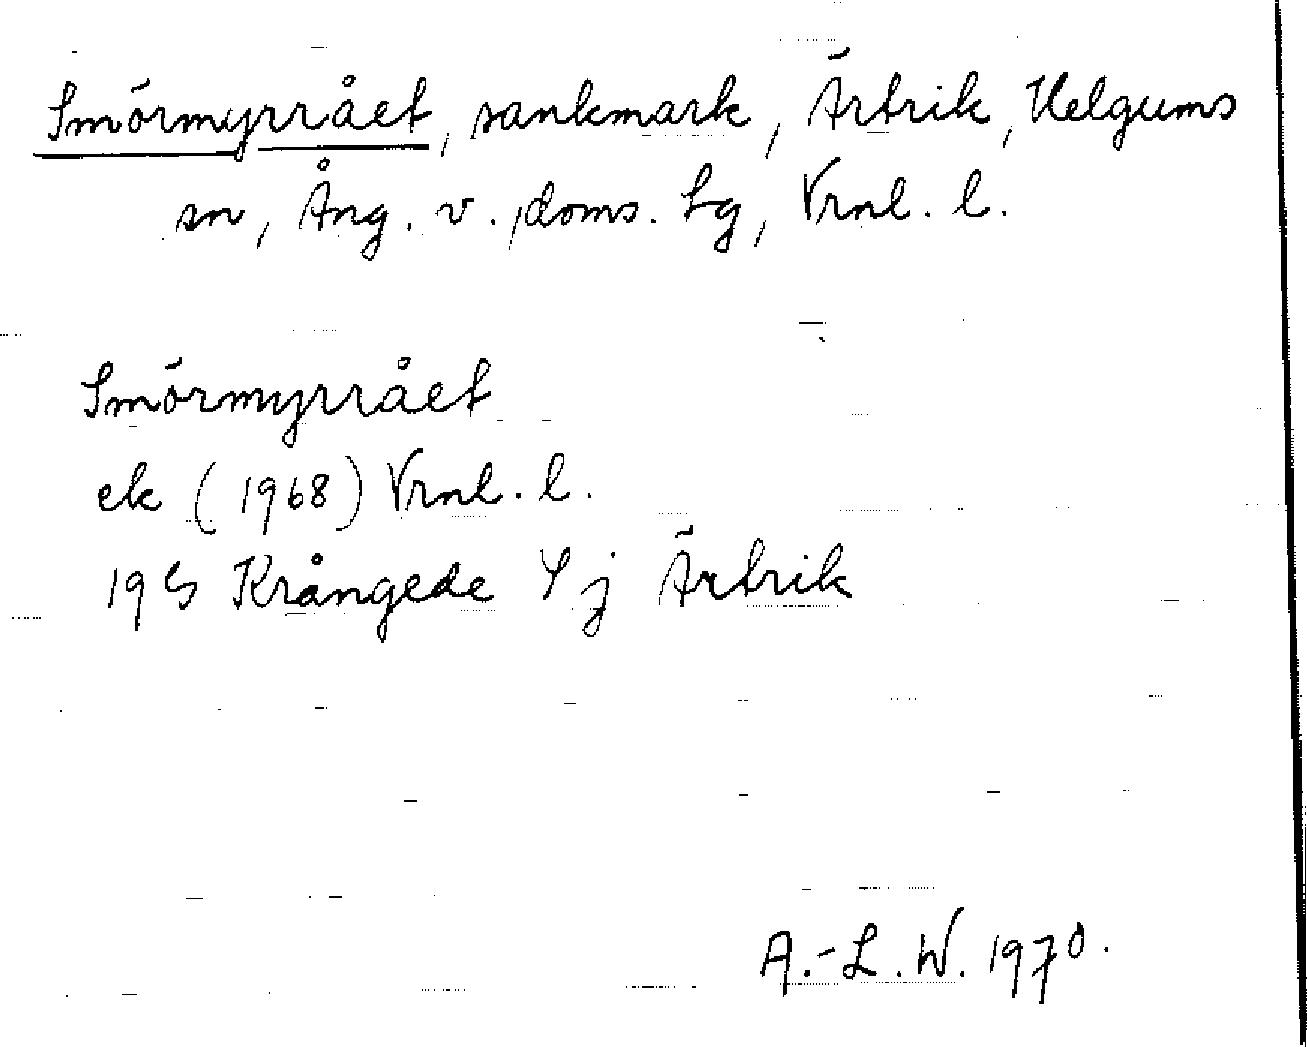 Smörmyrrået, sankmark, Ärtrik, Helgums
sn, Ång. v. doms. Lg, Vrnl. l.
Smörmyrrået
ek (1968) Vrnl. l.
19 Krångede j Ärtrik
A.-L. W. 1970.